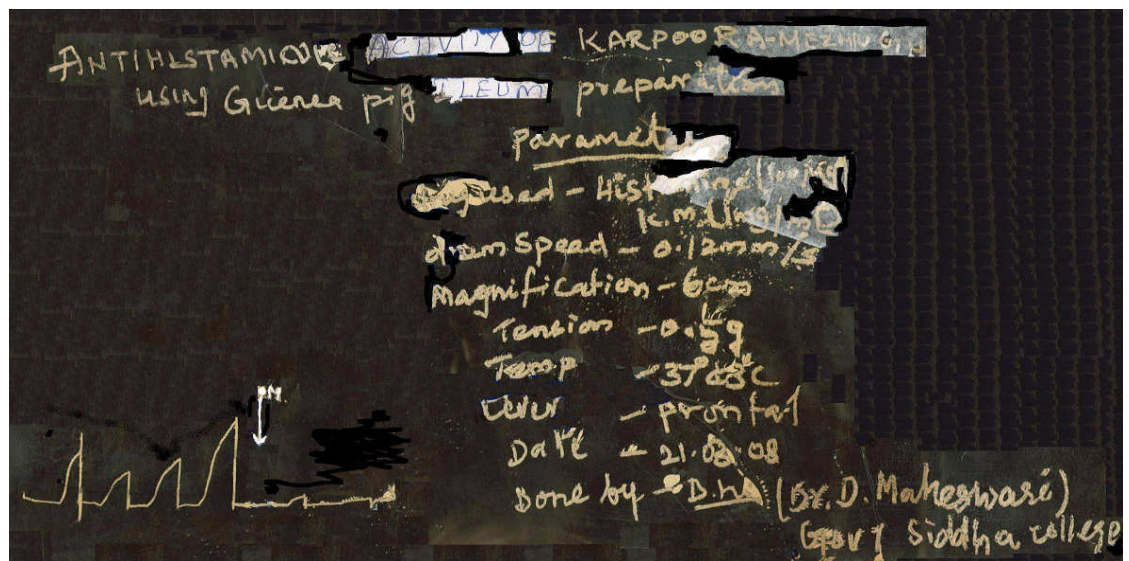 ANTIHISTAMINIC ACTIVITY OF KARPOORA-MEZHUGU
using Guenea pig ILEUM preparation
parameter
Drug used - Histamine (100 Mg
K.m (1mg/ml)
drum Speed - 0.12mm/s
Magnification - 6cm
Tension - 0.5g
Temp
Lever - prontal
Date - 21.03.08
P.M.
Done by - (Dr. D. Maheswari)
Govt Siddha college